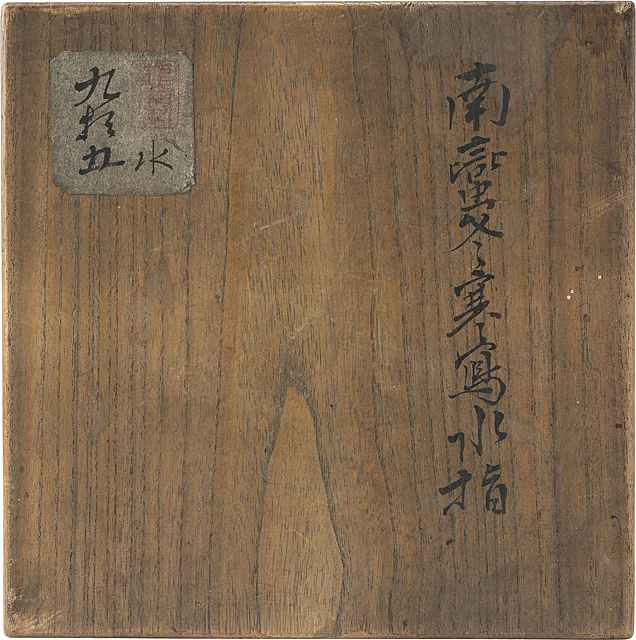 南蠻冬寒寫水指
水
九拾五